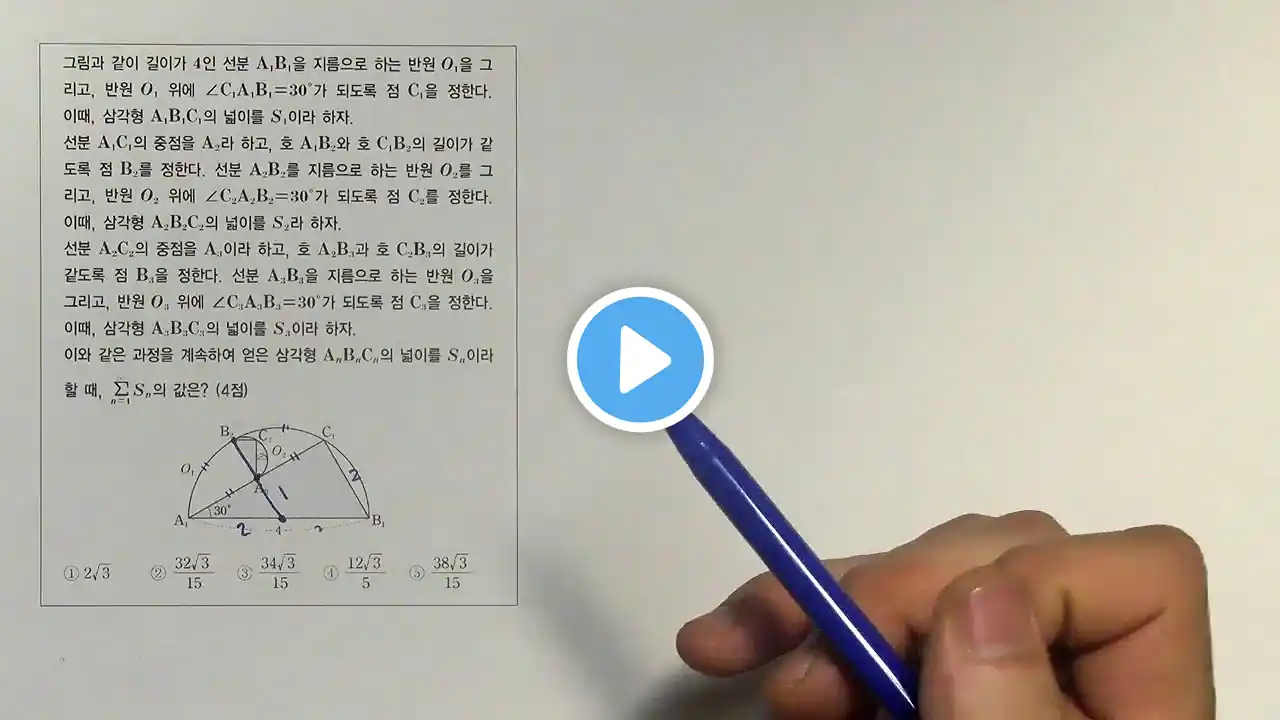 그림과 같이 길이가 4인 선분 A₁B₁을 지름으로 하는 반원 O₁을 그
리고, 반원 O₁ 위에 ∠C₁A₁B₁=30°가 되도록 점 C₁을 정한다.
이때, 삼각형 A₁B₁C₁의 넓이를 S₁이라 하자.
선분 A₁C₁의 중점을 A₂라 하고, 호 A₁B₂와 호 C₁B₂의 길이가 같
도록 점 B₂를 정한다. 선분 A₂B₂를 지름으로 하는 반원 O₂를 그
리고, 반원 O₂ 위에 ∠C₂A₂B₂=30°가 되도록 점 C₂를 정한다.
이때, 삼각형 A₂B₂C₂의 넓이를 S₂라 하자.
선분 A₂C₂의 중점을 A₃이라 하고, 호 A₂B₃과 호 C₂B₃의 길이가
같도록 점 B₃을 정한다. 선분 A₃B₃을 지름으로 하는 반원 O₃을
그리고, 반원 O₃ 위에 ∠C₃A₃B₃=30°가 되도록 점 C₃을 정한다.
이때, 삼각형 A₃B₃C₃의 넓이를 S₃이라 하자.
이와 같은 과정을 계속하여 얻은 삼각형 AₙBₙCₙ의 넓이를 Sₙ이라
할 때, ∑ₙ₌₁ Sₙ의 값은? (4점)
B₂ C₂ C₁
O₁ O₂ 2
A 1
A₁ 30° B₁
2 4 2
① 2√3 ② 32√3/15 ③ 34√3/15 ④ 12√3/5 ⑤ 38√3/15